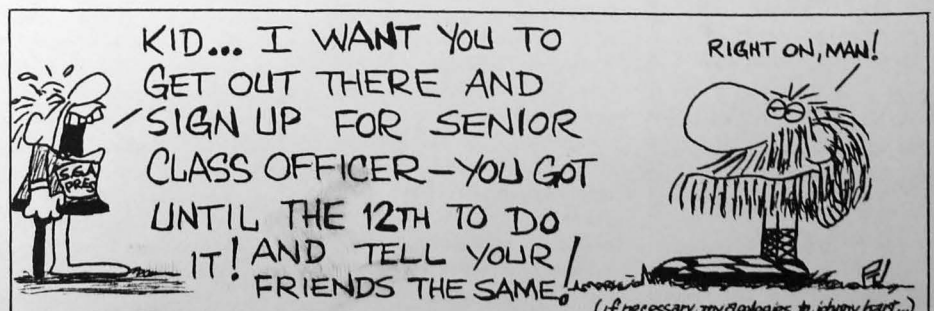 KID... I WANT YOU TO
GET OUT THERE AND
SIGN UP FOR SENIOR
CLASS OFFICER-YOU GOT
UNTIL THE 12TH TO DO
IT! AND TELL YOUR
FRIENDS THE SAME!
S.G.A.
PRES
RIGHT ON, MAN!
(if necessary, my apologies to johnny hart...)